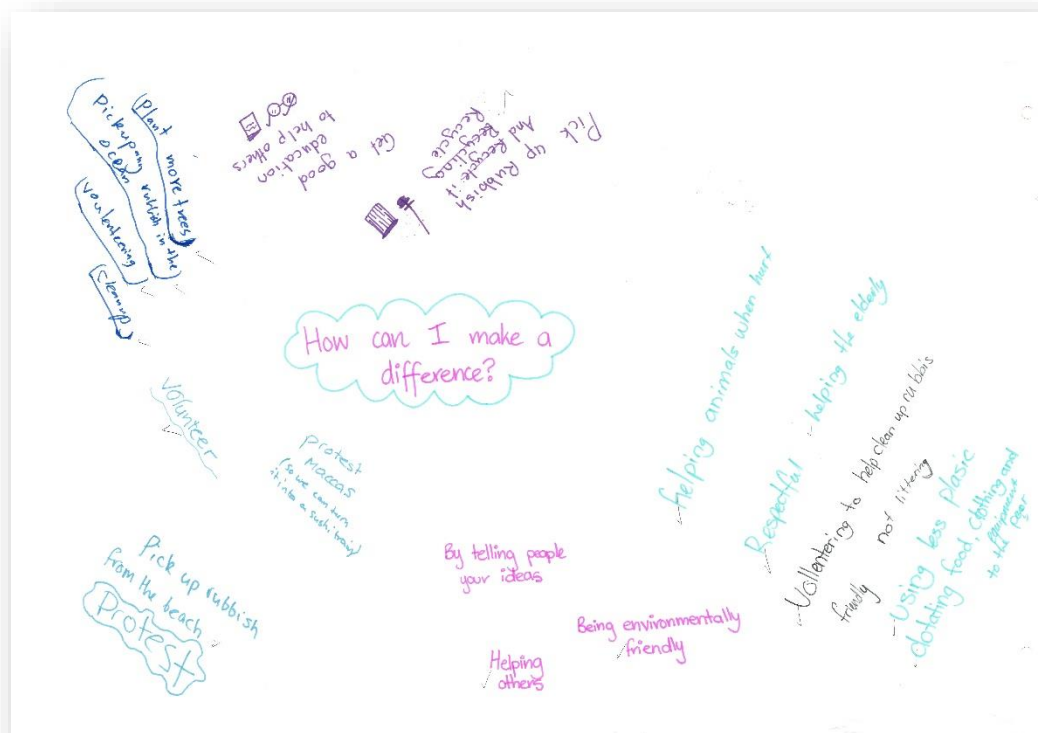 How can I make a
difference?
Plant more trees
Pickupany rubbish in the
ocean
voulenteering
Cleanup
Get a
good
education
to help others
Pick
up Rubbish
And Recycle it
Recycling
Recycle
volunteer
protest
maccas
(so we can turn
it into a sushi train)
Pick up rubbish
from the beach
Protest
By telling people
your ideas
Being environmentally
friendly
Helping
others
helping animals when hurt
Respectful - helping the elderly
- Vollentering to help clean up rubbis
friendly not littering
- Using less plasic
dotating food, clothing and
to the